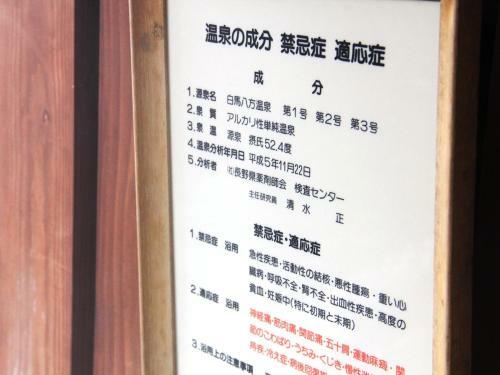 温泉の成分 禁忌症 適応症
成 分
1.源泉名 白馬八方温泉 第1号 第2号 第3号
2.泉質 アルカリ性単純温泉
3.泉温 源泉 摂氏52.4度
4.温泉分析年月日 平成5年11月22日
5.分析者 ㈳長野県薬剤師会 検査センター
主任研究員 清水 正
禁忌症・適応症
1.禁忌症 浴用 急性疾患・活動性の結核・悪性腫瘍・重い心
臓病・呼吸不全・腎不全・出血性疾患・高度の
貧血・妊娠中(特に初期と末期)
2.適応症 浴用 神経痛・筋肉痛・関節痛・五十肩・運動麻痺・関
節のこわばり・うちみ・くじき・慢性
痔疾・冷え症・病後回復
3.浴用上の注意事項